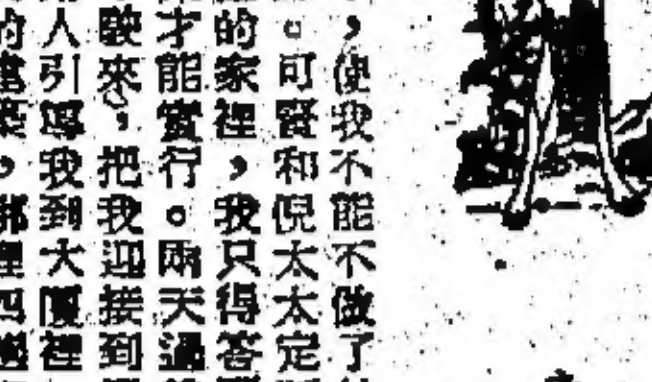 ，使我不能不做了
。可賢和倪太太定
的家裡，我只得答
才能實行。兩天過
駛來，把我迎接到
人引導我到大廈裡
的建築，那裡四週